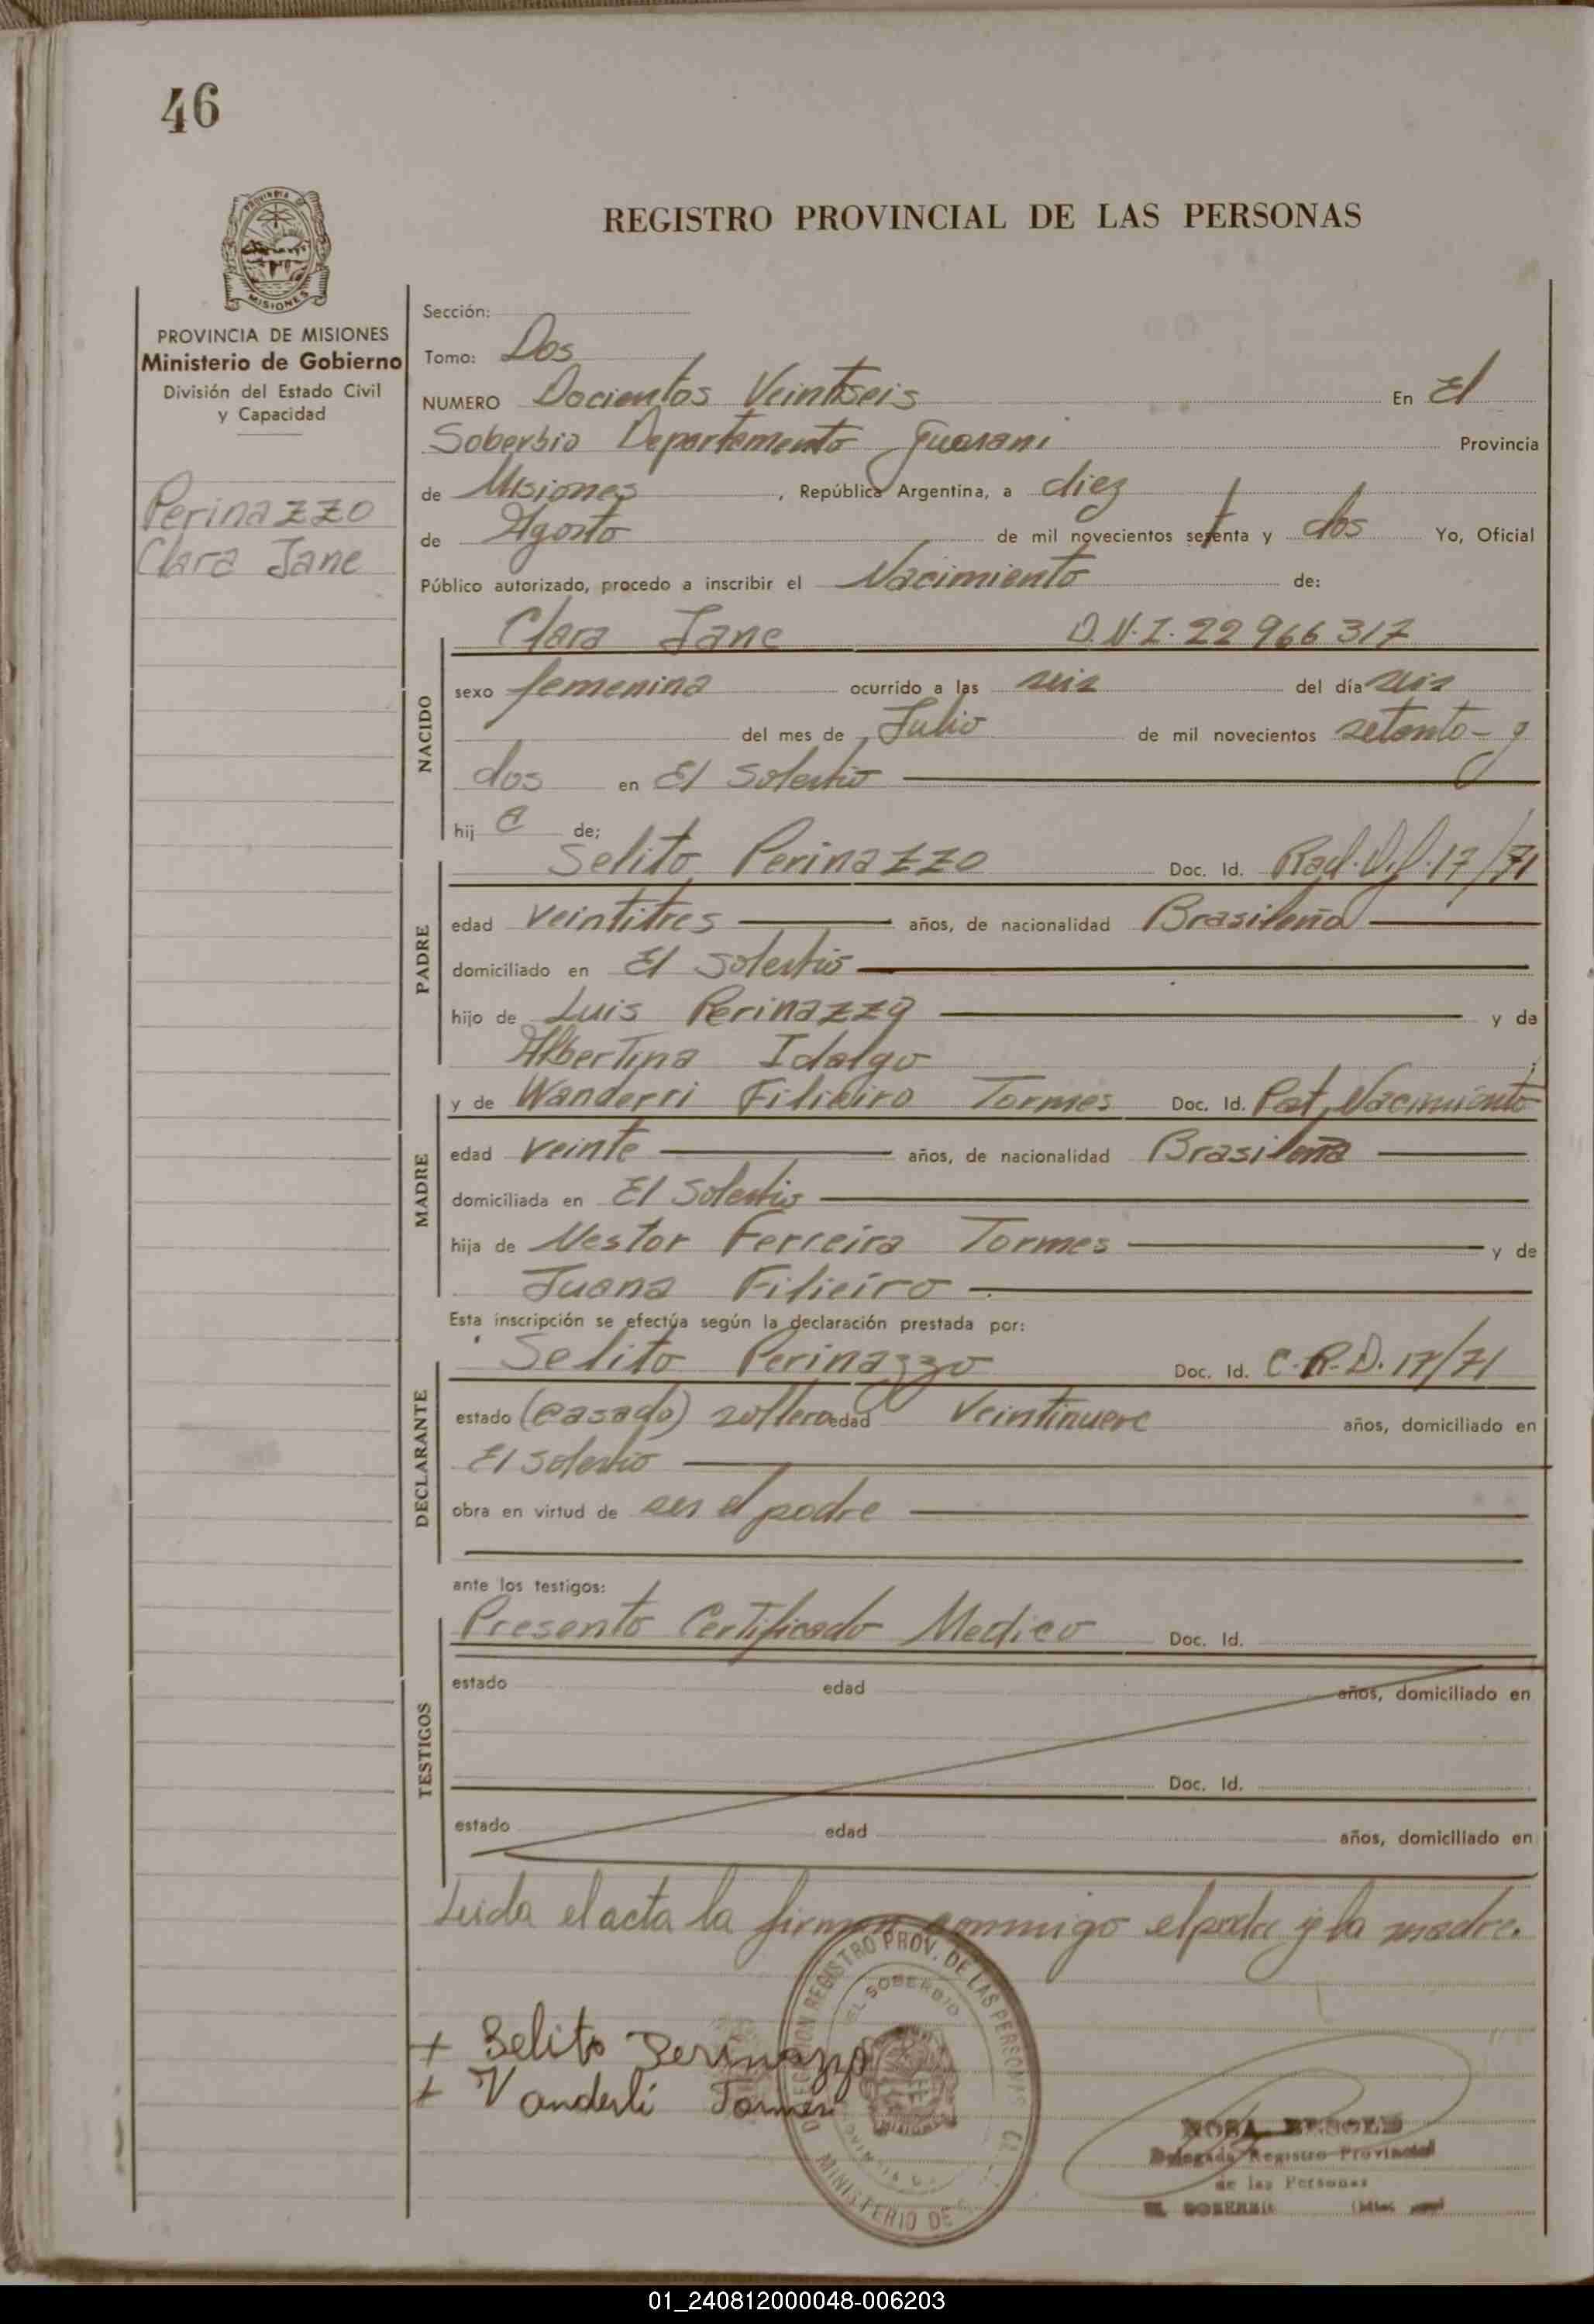 46
PROVINCIA DE
MISIONES
PROVINCIA DE MISIONES
Ministerio de Gobierno
División del Estado Civil
y Capacidad
Perinazzo
Clara Jane
REGISTRO PROVINCIAL DE LAS PERSONAS
Sección:
Tomo: Dos
NUMERO Docientos Veintiseis En El
Soberbio Departamento Guarani Provincia
de Misiones, República Argentina, a diez
de Agosto de mil novecientos setenta y dos Yo, Oficial
Público autorizado, procedo a inscribir el Nacimiento de:
NACIDO
Clara Jane D.N.I. 22966317
sexo femenina ocurrido a las seis del día seis
del mes de Julio de mil novecientos setenta y
dos en El Soberbio
hij a de;
PADRE
Selito Perinazzo Doc. Id. Rad. Def. 17/71
edad veintitres años, de nacionalidad Brasileña
domiciliado en El Soberbio
hijo de Luis Perinazzo y de
Albertina Idalgo
MADRE
y de Wanderri Filieiro Tormes Doc. Id. Pat. Nacimiento
edad veinte años, de nacionalidad Brasileña
domiciliada en El Soberbio
hija de Nestor Ferreira Tormes y de
Juana Filieiro
Esta inscripción se efectúa según la declaración prestada por:
DECLARANTE
Selito Perinazzo Doc. Id. C.R.D. 17/71
estado (casado) soltero edad Veintinueve años, domiciliado en
El Soberbio
obra en virtud de ser el padre
ante los testigos:
TESTIGOS
Presento Certificado Medico Doc. Id.
estado edad años, domiciliado en
Doc. Id.
estado edad años, domiciliado en
Leida el acta la firman conmigo el padre y la madre.
REGISTRO PROV. DE LAS PERSONAS
EL SOBERBIO
MINISTERIO DE
+ Selito Perinazzo
+ Vanderli Tormes
ROSA
Delegada Registro Provincial
de las Personas
EL SOBERBIO
01_240812000048-006203